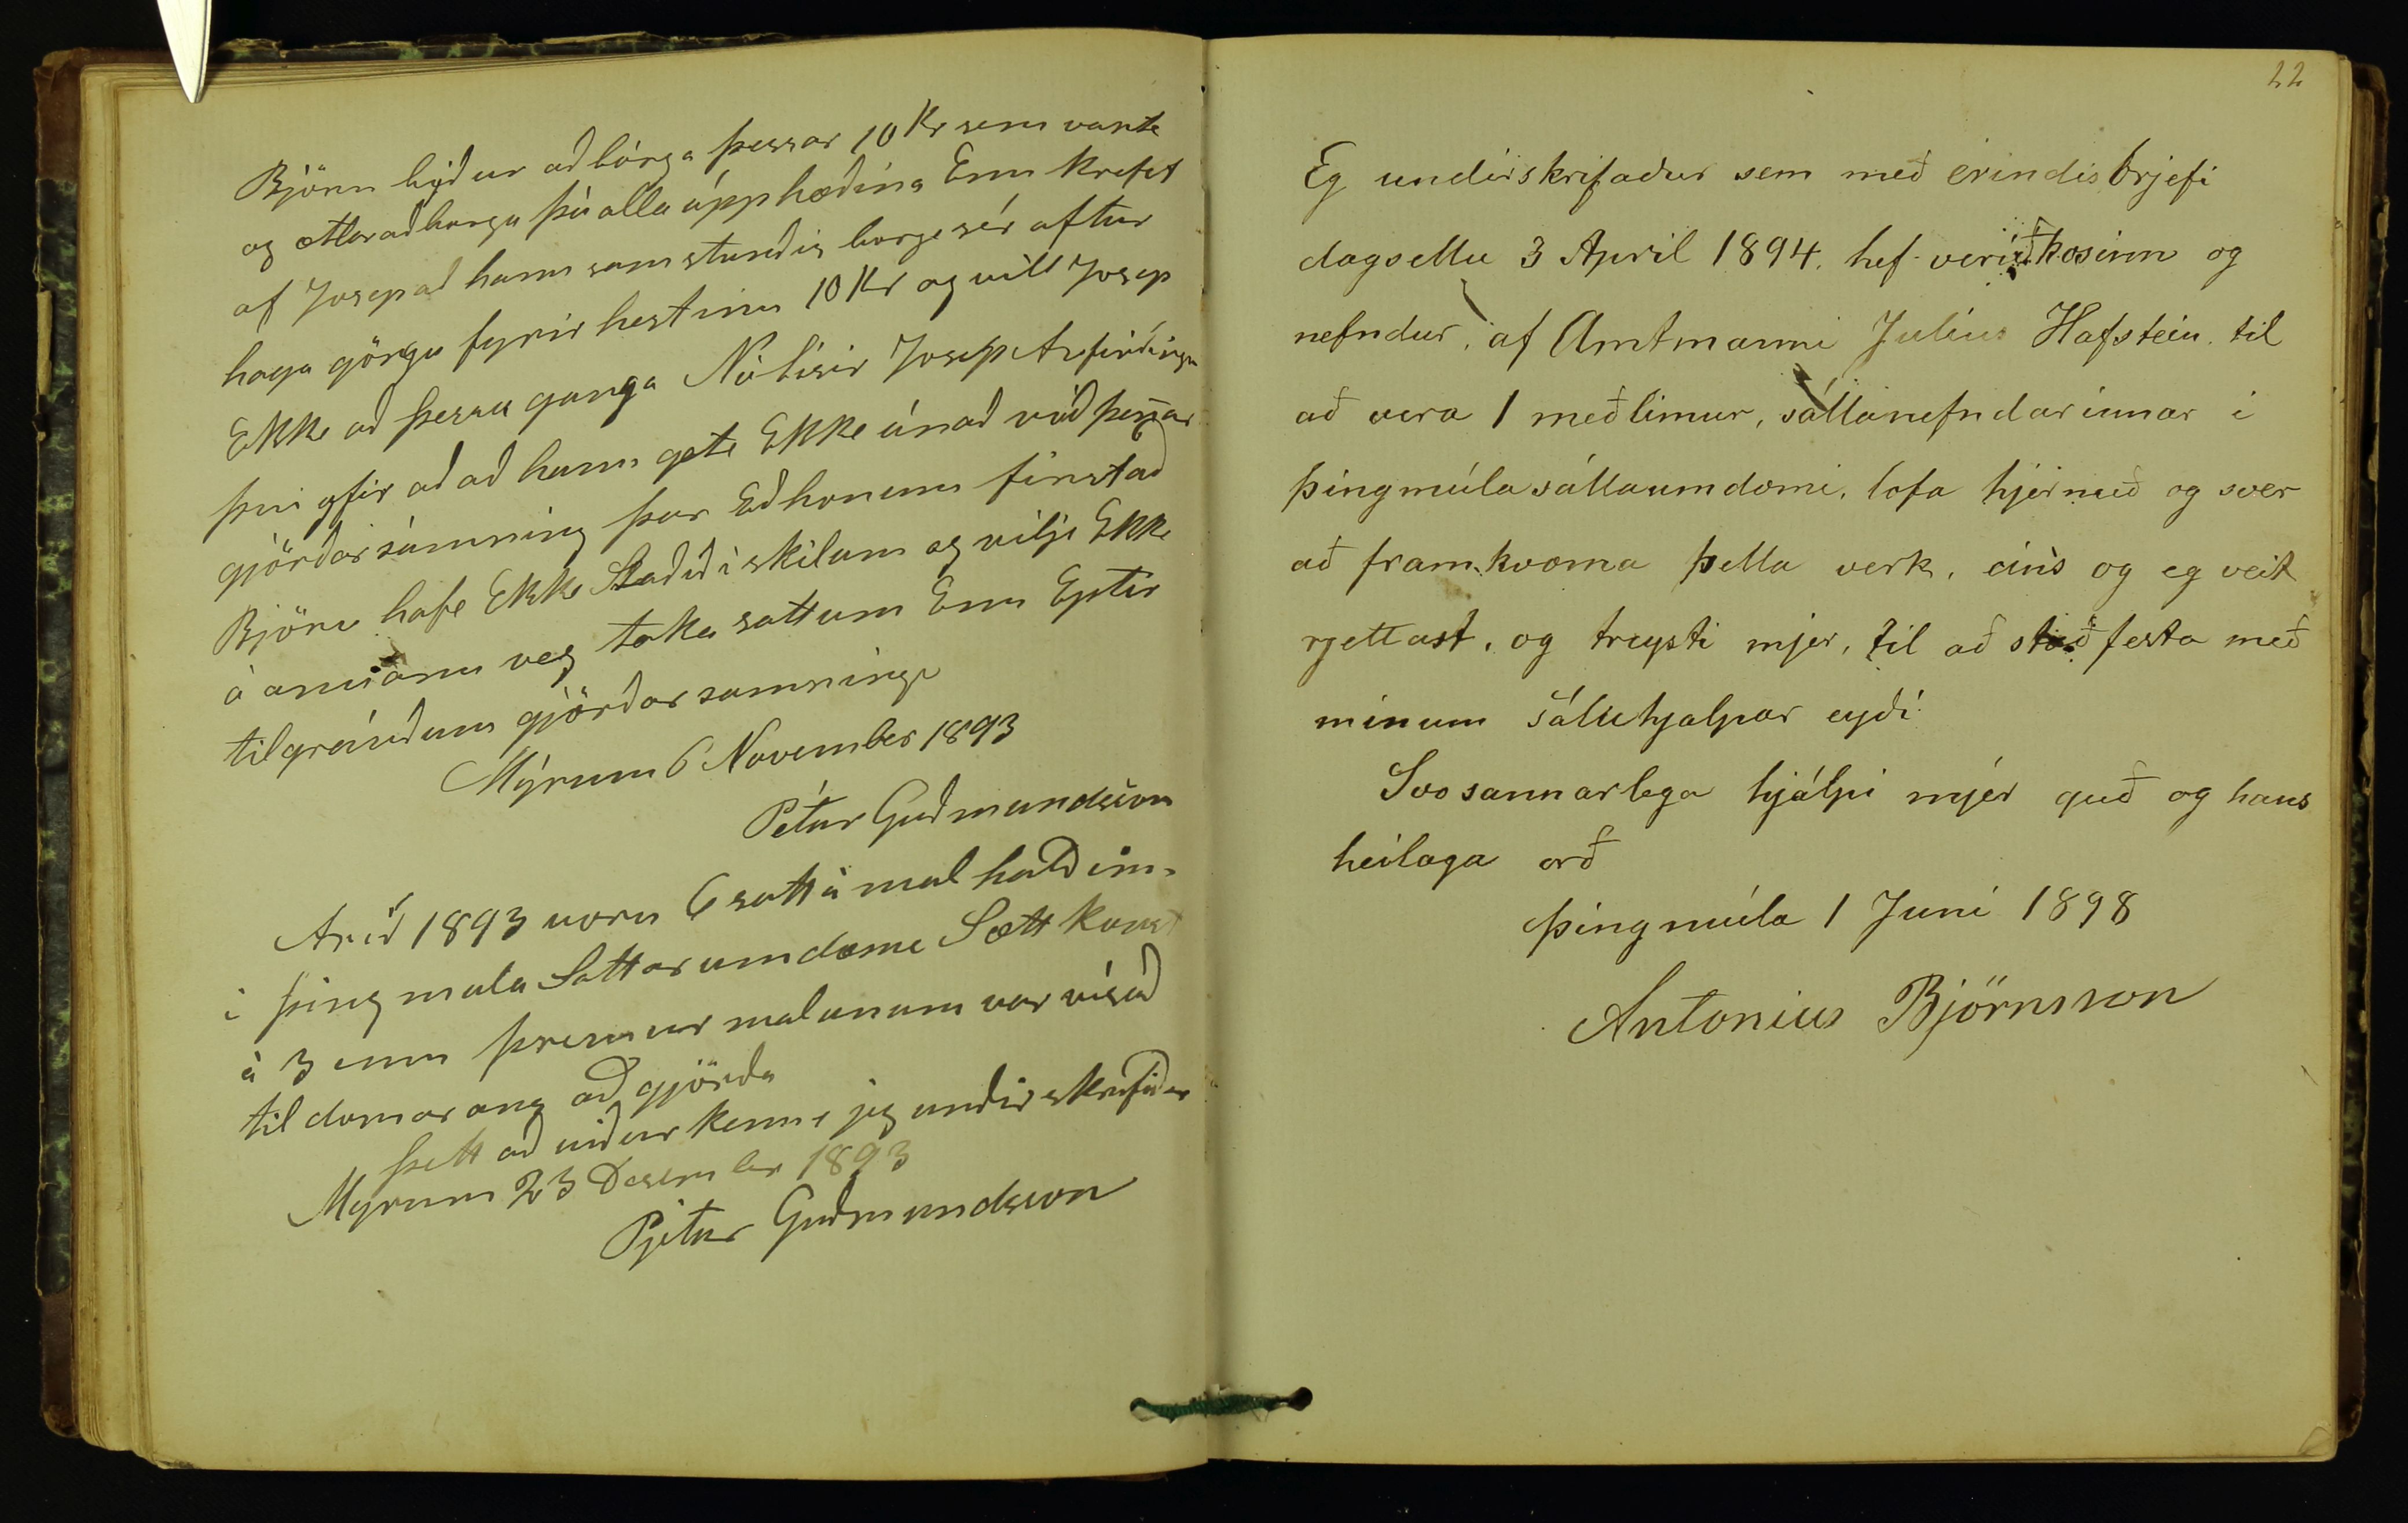 Björn biður að bórga þessar 10 Kr sem vante
og ætlar að borga þá alla úpphæðina Enn krefst
af Josep að hann samstundis borge sér aftur
haga göngu fyrir hestinn 10 Kr og vill Josep
Ekke að þessu ganga Nú lisir Josep
því yfir að að hann gete Ekke únað við þennar
gjörðar sámning þar Eð honum finst að
Björn hafe Ekke Staðið i skilum og vilje Ekke
á annann veg taka sattum Enn Eptir
tilgreindum gjörðar samninge
Mýrum 6 November 1893
Pétur Guðmundsson
Arið 1893 voru 6 sátta mal haldin
i þing mula Sattar umdæme Sætt komst
á 3 enn þremur malunum var vísað
til domar ang að gjörða
Þett að viðurkenne jeg undirskrifaður
Myrum 23 Desember 1893
Pjetur Guðmundsson
22
Eg undirskrifaður sem með erindisbrjefi
dagsettu 3 April 1894. hef verið kosinn og
nefndur, af Amtmanni Julíus Hafstein til
að vera 1 meðlimur, sáttanefndarinnar i
þingmúlasáttaumdæmi, lofa hjermeð og sver
að framkvæma þetta verk, eins og eg veit
rjettast, og treysti mjer, til að staðfesta með
minum sáluhjalpar eyði
Svo sannarlega hjálpi mjér guð og hans
heilaga orð
þingmúla 1 Juni 1898
Antonius Björnsson